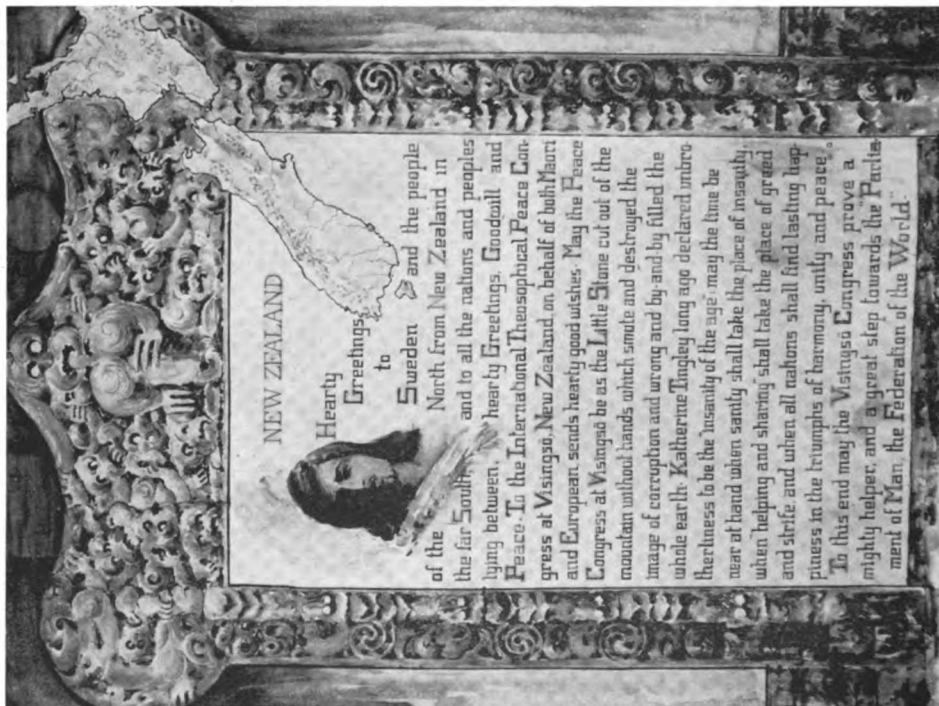 NEW ZEALAND
Hearty
Greetings
to
Sweden and the people
of the North from New Zealand in
the far South, and to all the nations and peoples
lying between, hearty Greetings, Goodwill and
Peace. To the International Theosophical Peace Con-
gress at Visingsö, New Zealand, on behalf of both Maori
and European sends hearty good wishes. May the Peace
Congress at Visingsö be as the Little Stone cut out of the
mountain without hands which smote and destroyed the
image of corruption and wrong and by and by filled the
whole earth. Katherine Tingley long ago declared unbro-
therliness to be the insanity of the age; may the time be
near at hand when sanity shall take the place of insanity
when helping and sharing shall take the place of greed
and strife, and when all nations shall find lasting hap-
piness in the triumphs of harmony, unity and peace.
To this end may the Visingsö Congress prove a
mighty helper, and a great step towards the "Parlia-
ment of Man, the Federation of the World."